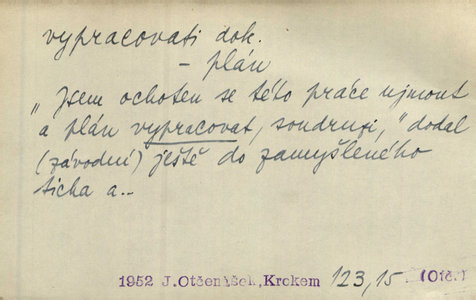 vypracovati dok.
– plán
„Jsem ochoten se této práce ujmout
a plán vypracovat, soudruzi,“ dodal
(závodní) ještě do zamyšleného
ticha a..
1952 J.Otčenášek, Krokem 123,15 (Otč.)